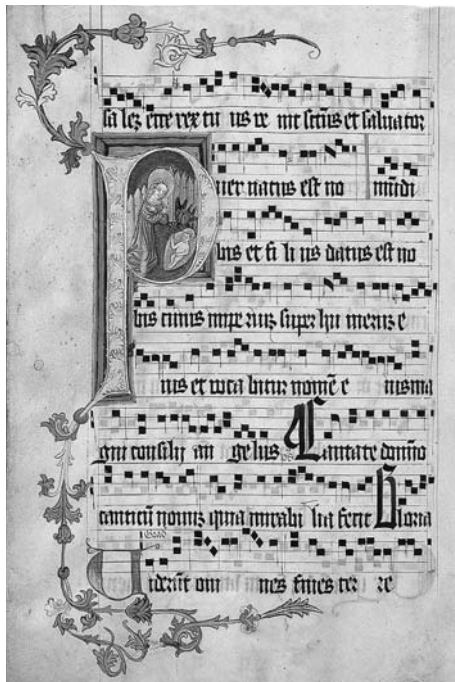 sa lez ecce rex tu us ve nit sctūs et saluator
Puer natus est no mūdi
bis et fi li us datus est no
bis cuius impe riuz super hu meruz e
ius et voca bitur nomē e ius ma
gni consilij an ge lus ps Cantate domino
canticū nouuz quia mirabi lia fecit Gloria
Grad
Viderūt om nes fines ter re